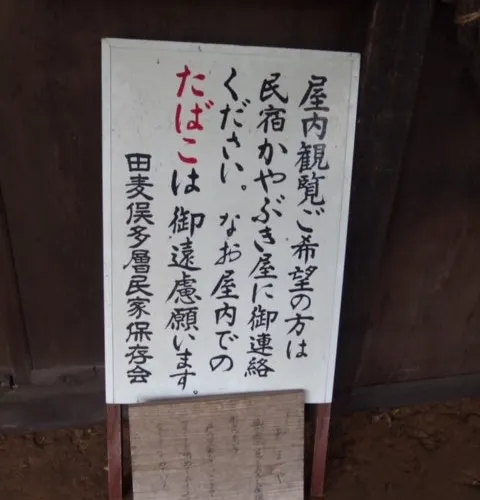 屋内観覧ご希望の方は
民宿かやぶき屋に御連絡
ください。なお屋内での
たばこは御遠慮願います。
田麦俣多層民家保存会